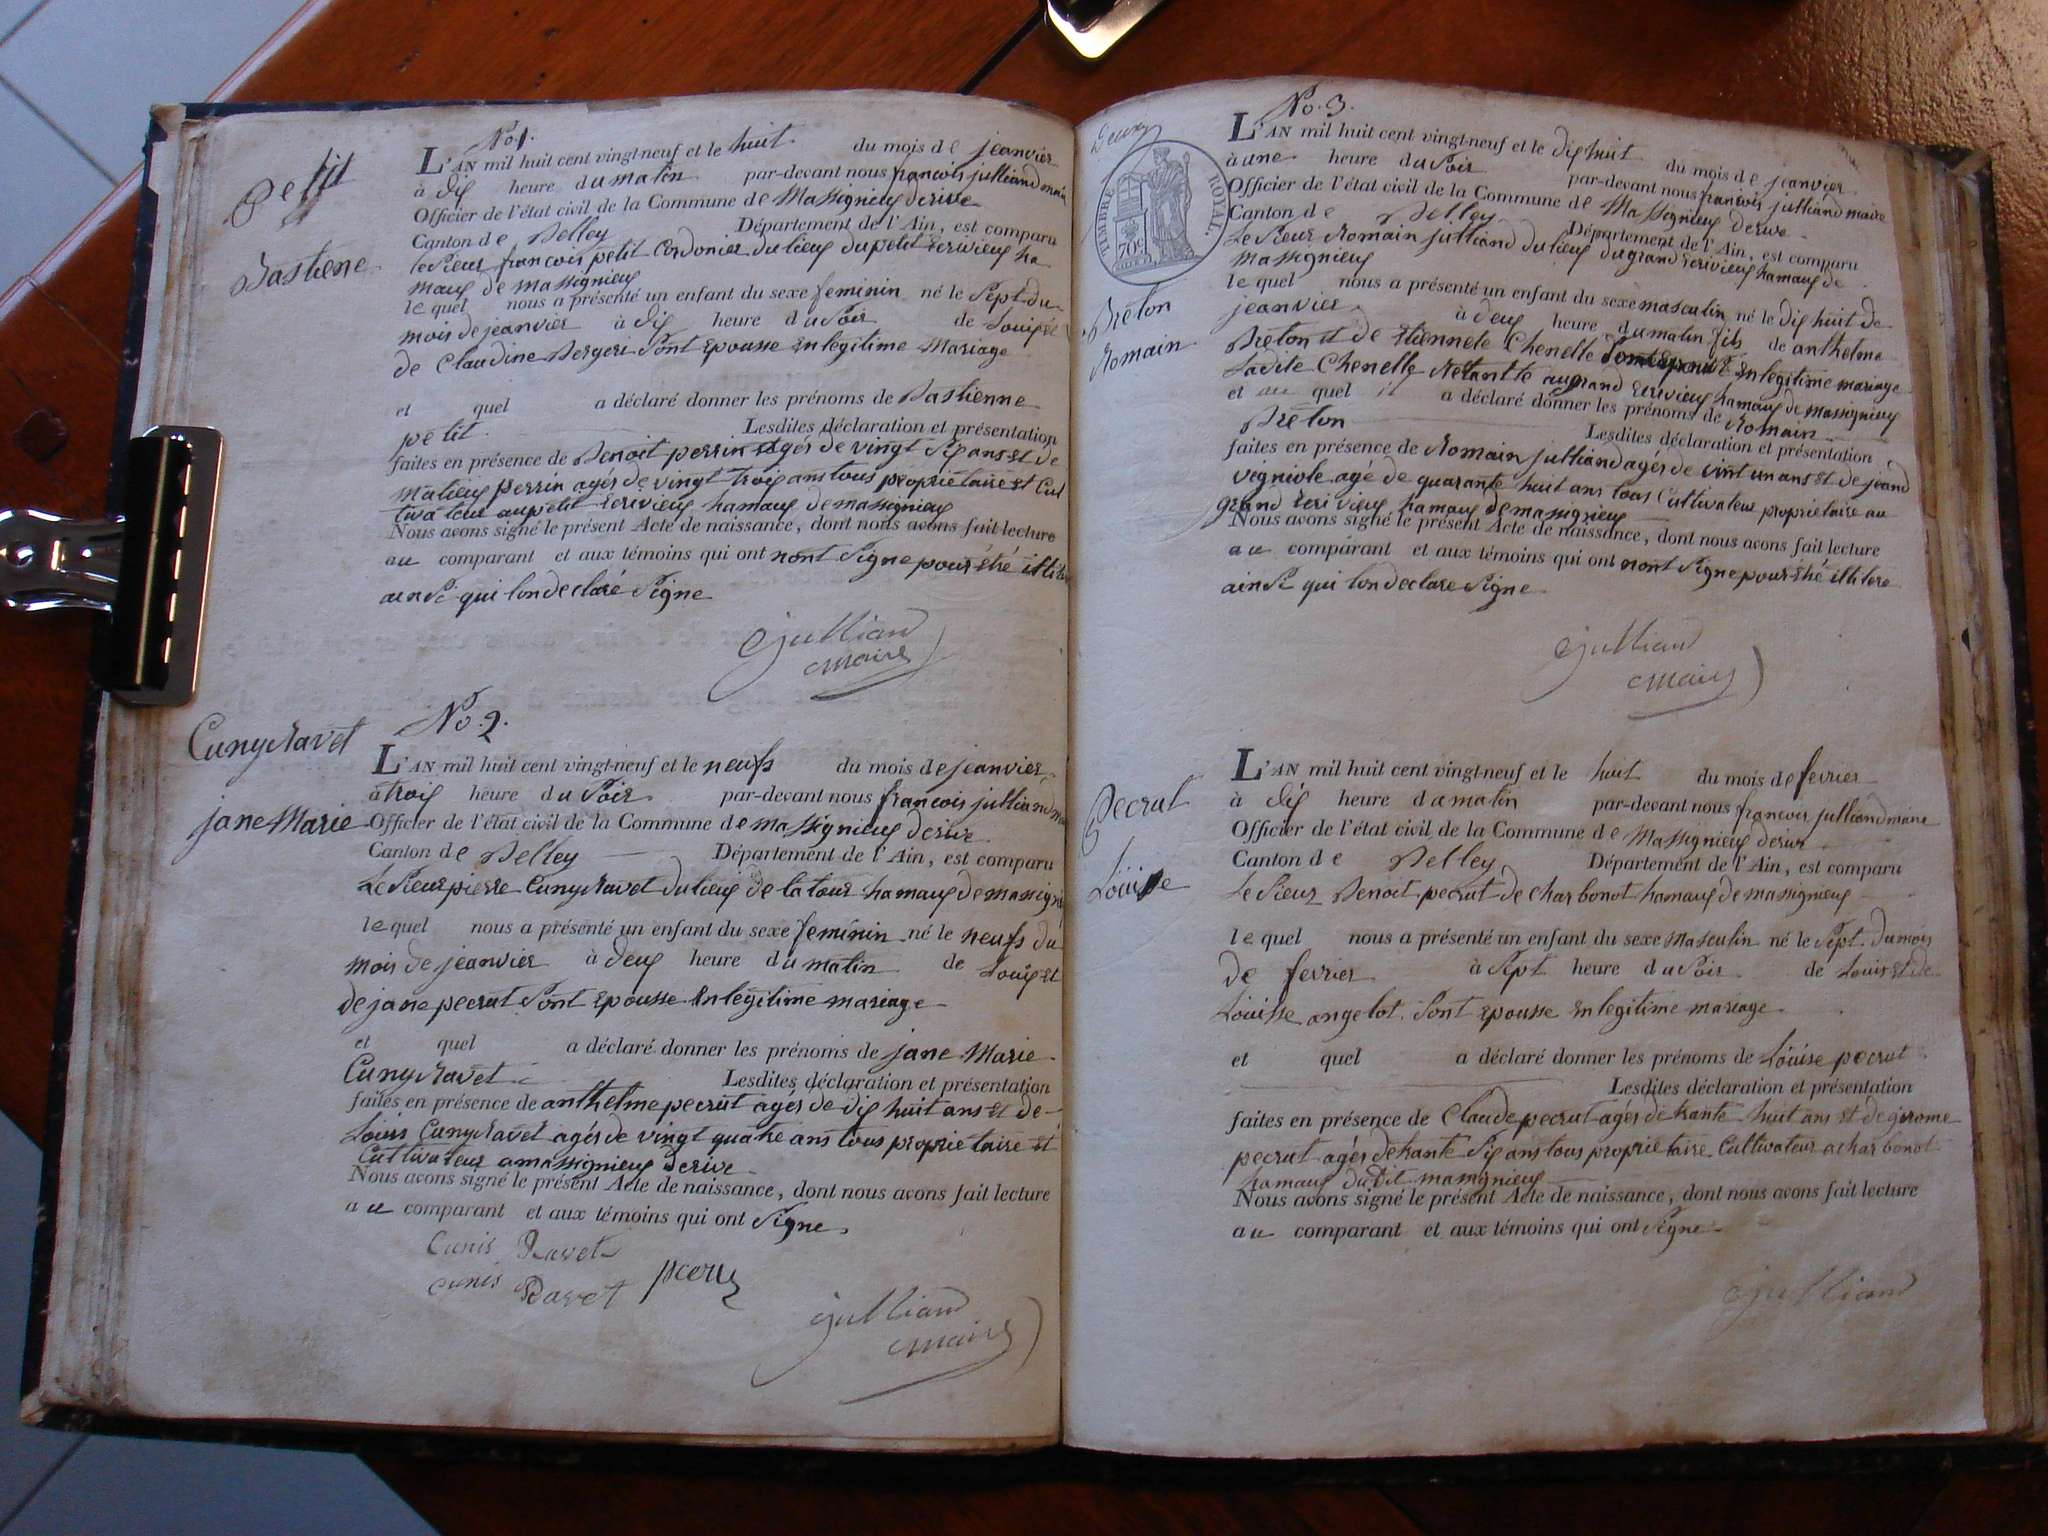 No 1.
Petit
Bastiene
L'AN mil huit cent vingt-neuf et le huit du mois de jeanvier
à dix heure du matin par-devant nous francois julliand maire
Officier de l'état civil de la Commune de Massignieux derive
Canton de Belley Département de l'Ain, est comparu
le sieur francois petit Cordonier du lieux du petit Ecrivieux ha
maux de massignieux
le quel nous a présenté un enfant du sexe feminin né le Sept du
mois de jeanvier à dix heure du Soir de Louis et
de Claudine Bergeri Sont Epousse En legitime Mariage
et quel a déclaré donner les prénoms de Bastienne
petit. Lesdites déclaration et présentation
faites en présence de Benoit perrin agés de vingt Six ans Et de
Matieux perrin agés de vingt trois ans tous proprietaire Et Cul
tivateur au petit Ecrivieux hamaux de massignieux
Nous avons signé le présent Acte de naissance, dont nous avons fait lecture
au comparant et aux témoins qui ont nont Signe pour Etré illi
ainSi qui lon declaré Signe
julliand
maire
No. 2.
Cuny Ravet
jane Marie
L'AN mil huit cent vingt-neuf et le neufs du mois de jeanvier
à trois heure du Soir par-devant nous francois julliand
Officier de l'état civil de la Commune de Massignieux derive
Canton de Belley Département de l'Ain, est comparu
Le Sieur pierre Cuny Ravet du lieux de la tour hamaux de massigni
le quel nous a présenté un enfant du sexe feminin né le neufs du
mois de jeanvier à deux heure du matin de Louis Et
de jane pecrut Sont Epousse En legitime mariage
et quel a déclaré donner les prénoms de jane Marie
Cuny Ravet Lesdites déclaration et présentation
faites en présence de anthelme pecrut agés de dix huit ans Et de
Louis Cuny Ravet agés de vingt quatre ans tous proprietaire Et
Cultivateur a massignieux derive
Nous avons signé le présent Acte de naissance, dont nous avons fait lecture
au comparant et aux témoins qui ont Signe.
Cunis Ravet
cunis Ravet
julliand
maire
No. 3.
TIMBRE ROYAL.
70c
Breton
Romain
L'AN mil huit cent vingt-neuf et le dix huit du mois de jeanvier
à une heure du Soir par-devant nous francois julliand maire
Officier de l'état civil de la Commune de Massignieux derive
Canton de Belley Département de l'Ain, est comparu
Le Sieur Romain julliand du lieux du grand Ecrivieux hamaux de
massignieux
le quel nous a présenté un enfant du sexe masculin né le dix huit de
jeanvier à deux heure du matin fils de anthelme
Breton Et de Etiennete Chenelle En legitime mariage
Ladite Chenelle au grand Ecrivieux hamaux de massignieux
et au quel il a déclaré donner les prénoms de Romain
Breton Lesdites déclaration et présentation
faites en présence de Romain julliand agés de vint un ans Et de jeand
vigniole agé de quarante huit ans tous Cultivateur proprietaire au
grand Ecrivieux hamaux de massignieux
Nous avons signé le présent Acte de naissance, dont nous avons fait lecture
au comparant et aux témoins qui ont nont Signe pour Etré illitere
ainSi qui lon declare Signe
julliand
maire
Pecrut
Louise
L'AN mil huit cent vingt-neuf et le huit du mois de fevrier
à dix heure du matin par-devant nous francois julliand maire
Officier de l'état civil de la Commune de Massignieux derive
Canton de Belley Département de l'Ain, est comparu
Le Sieur Benoit pecrut de Charbonot hamaux de massignieux
le quel nous a présenté un enfant du sexe Masculin né le Sept. du mois
de fevrier à Sept heure du Soir de Louis Et de
Louisse angelot. Sont Epousse En legitime mariage
et quel a déclaré donner les prénoms de Louise pecrut
Lesdites déclaration et présentation
faites en présence de Claude pecrut agés de trante huit ans Et de gerome
pecrut agés de trante Six ans tous proprietaire Cultivateur a charbonot
hamaux dudit massignieux
Nous avons signé le présent Acte de naissance, dont nous avons fait lecture
au comparant et aux témoins qui ont Signe
julliand